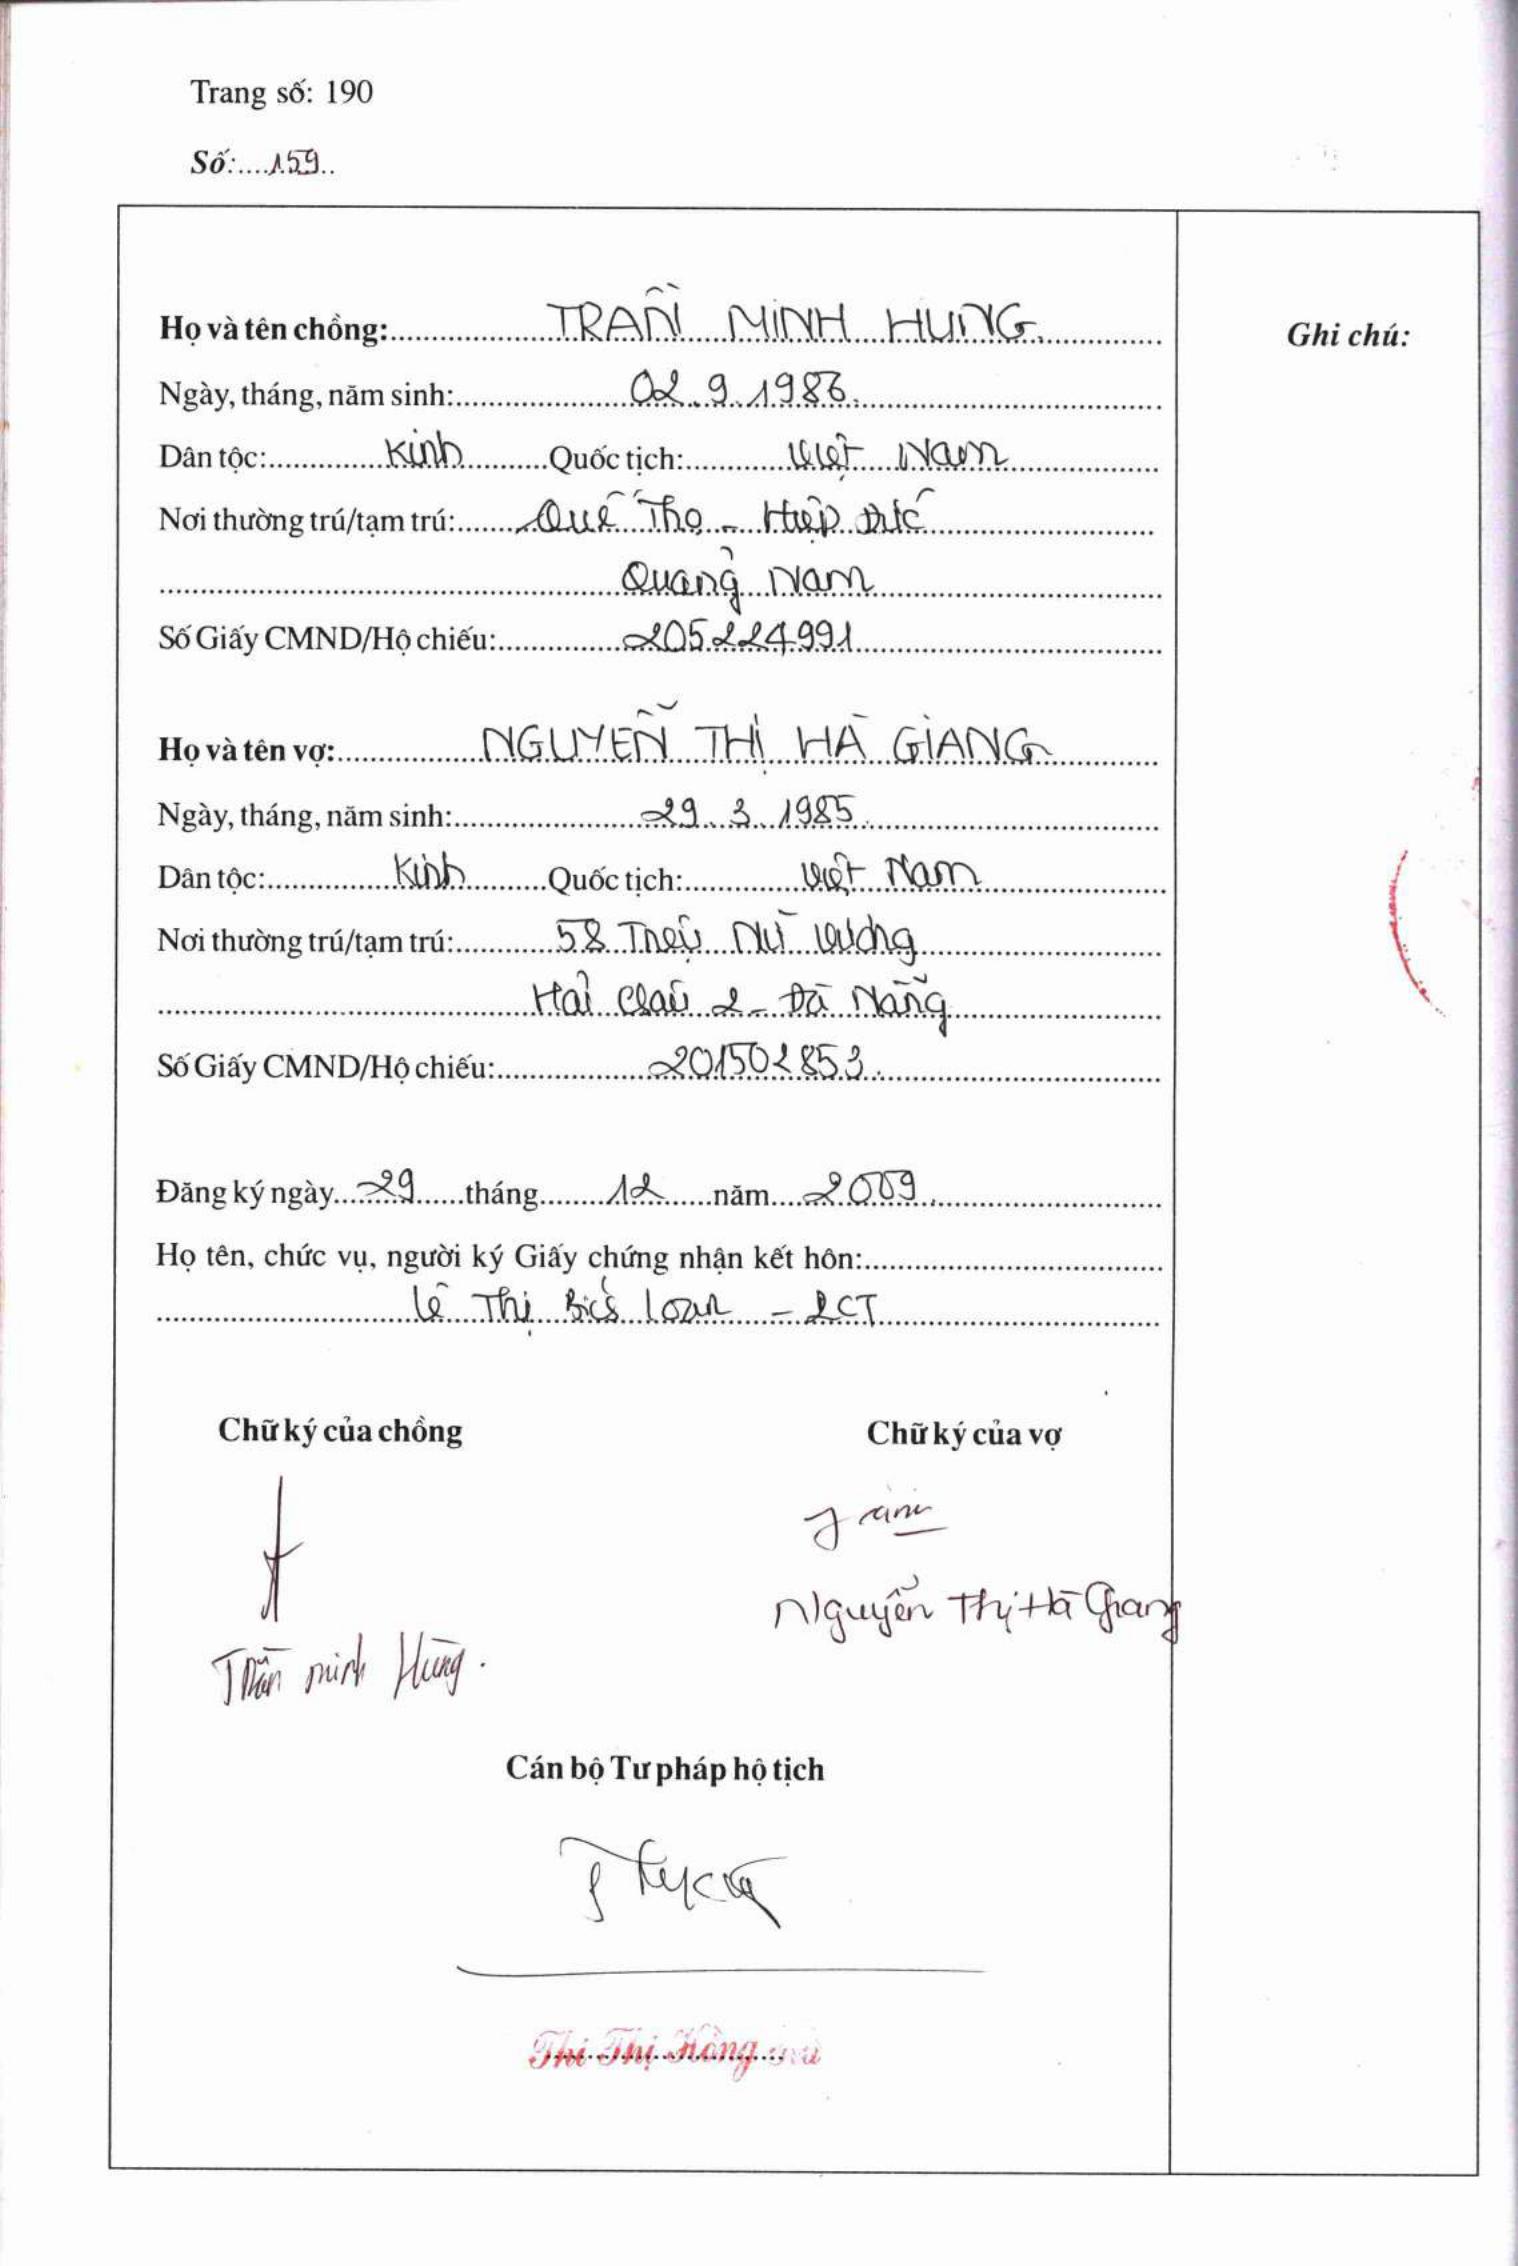 Trang số: 190
Số:....159..
Họ và tên chồng: TRẦN MINH HÙNG.
Ghi chú:
Ngày, tháng, năm sinh: 02.9.1986.
Dân tộc: Kinh Quốc tịch: Việt Nam
Nơi thường trú/tạm trú: Quế Thọ - Hiệp Đức
Quảng Nam
Số Giấy CMND/Hộ chiếu: 205224991
Họ và tên vợ: NGUYỄN THỊ HÀ GIANG
Ngày, tháng, năm sinh: 29.3.1985.
Dân tộc: Kinh Quốc tịch: Việt Nam
Nơi thường trú/tạm trú: 58 Triệu Nữ Vương
Hải Châu 2 - Đà Nẵng
Số Giấy CMND/Hộ chiếu: 201502853.
Đăng ký ngày 29 tháng 12 năm 2009.
Họ tên, chức vụ, người ký Giấy chứng nhận kết hôn:
Lê Thị Bích Loan - PCT
Chữ ký của chồng
Chữ ký của vợ
Nguyễn Thị Hà Giang
Trần Minh Hùng.
Cán bộ Tư pháp hộ tịch
Thị Hồng